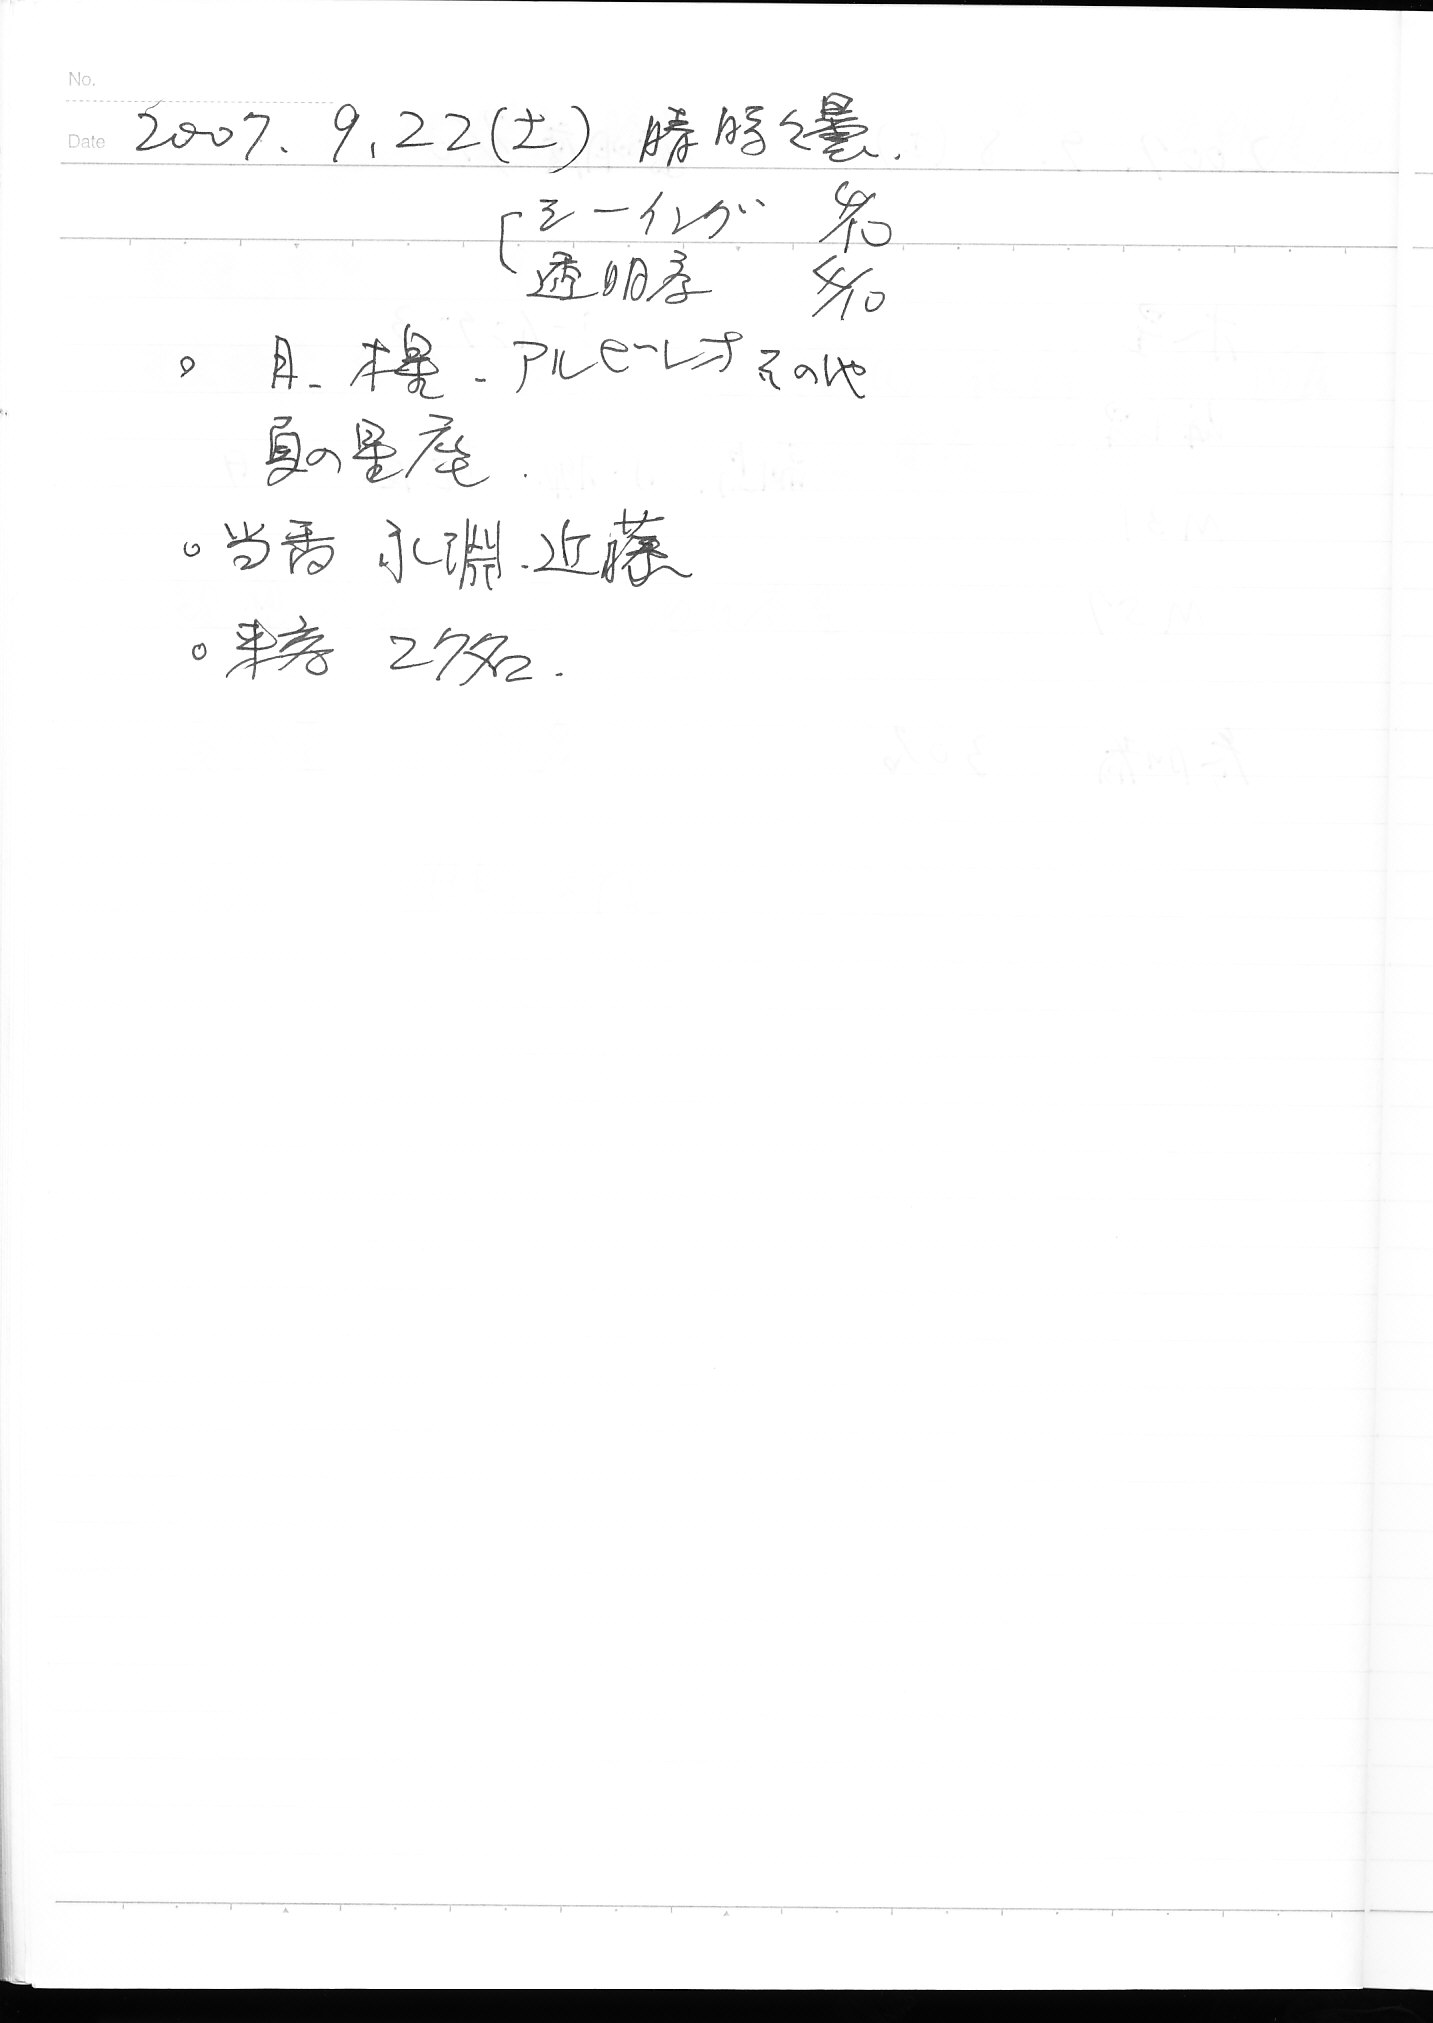 No.
Date 2007. 9. 22(土) 晴時々曇.
シーイング 4/10
透明度 4/10
○ 月. 木星. アルビーレオ その他
夏の星座.
○ 当番 永淵. 近藤
○ 来客 27名.